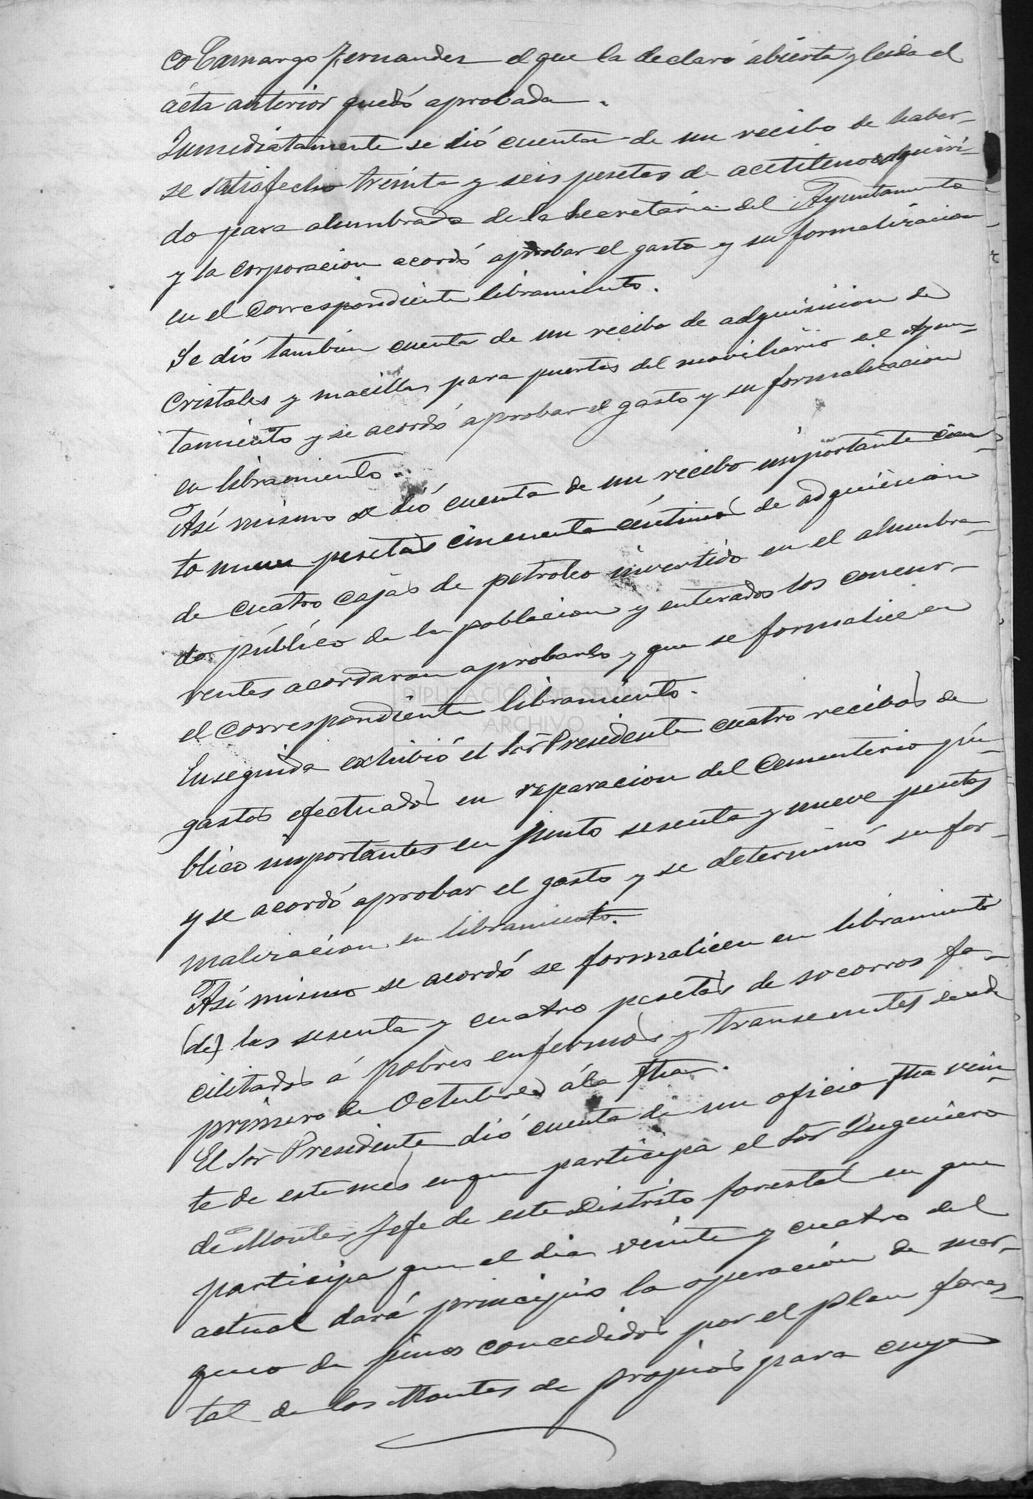 co Camargo Fernandez el que la declaró abierta y leida el
acta anterior quedó aprobada.
Inmediatamente se dió cuenta de un recibo de haber-
se satisfecho treinta y seis pesetas de acetileno adquiri-
do para alumbrado de la Secretaria del Ayuntamiento
y la corporacion acordó aprobar el gasto y su formalizacion
en el correspondiente libramiento.
Se dió tambien cuenta de un recibo de adquisicion de
cristales y macillas para puertas del moviliario del Ayun-
tamiento y se acordó aprobar el gasto y su formalizacion
en libramiento.
Asi mismo se dió cuenta de un recibo importante cien-
to pesetas cincuenta céntimos de adquisicion
de cuatro cajas de petroleo invertido en el alumbra-
do público de la poblacion y enterados los concur-
rentes acordaron aprobarlo y que se formalice en
el correspondiente libramiento.
DIPUTACIÓN DE SEVILLA
ARCHIVO
Enseguida exhibió el Sor Presidente cuatro recibos de
gastos efectuados en reparacion del Cementerio pú-
blico importantes en junto sesenta y nueve pesetas
y se acordó aprobar el gasto y se determinó su for-
malizacion en libramiento.
Asi mismo se acordó se formalicen en libramiento
(de) las sesenta y cuatro pesetas de socorros fa-
cilitados á pobres enfermos y transeuntes desde
primero de Octubre á la fha.
El Sor Presidente dió cuenta de un oficio fha vein-
te de este mes en que participa el Sor Ingeniero
de Montes Jefe de este Distrito forestal en que
participa que el dia veinte y cuatro del
actual dará principio la operación de mar-
queo de pinos concedidos por el plan fores-
tal de los Montes de propios para cuya